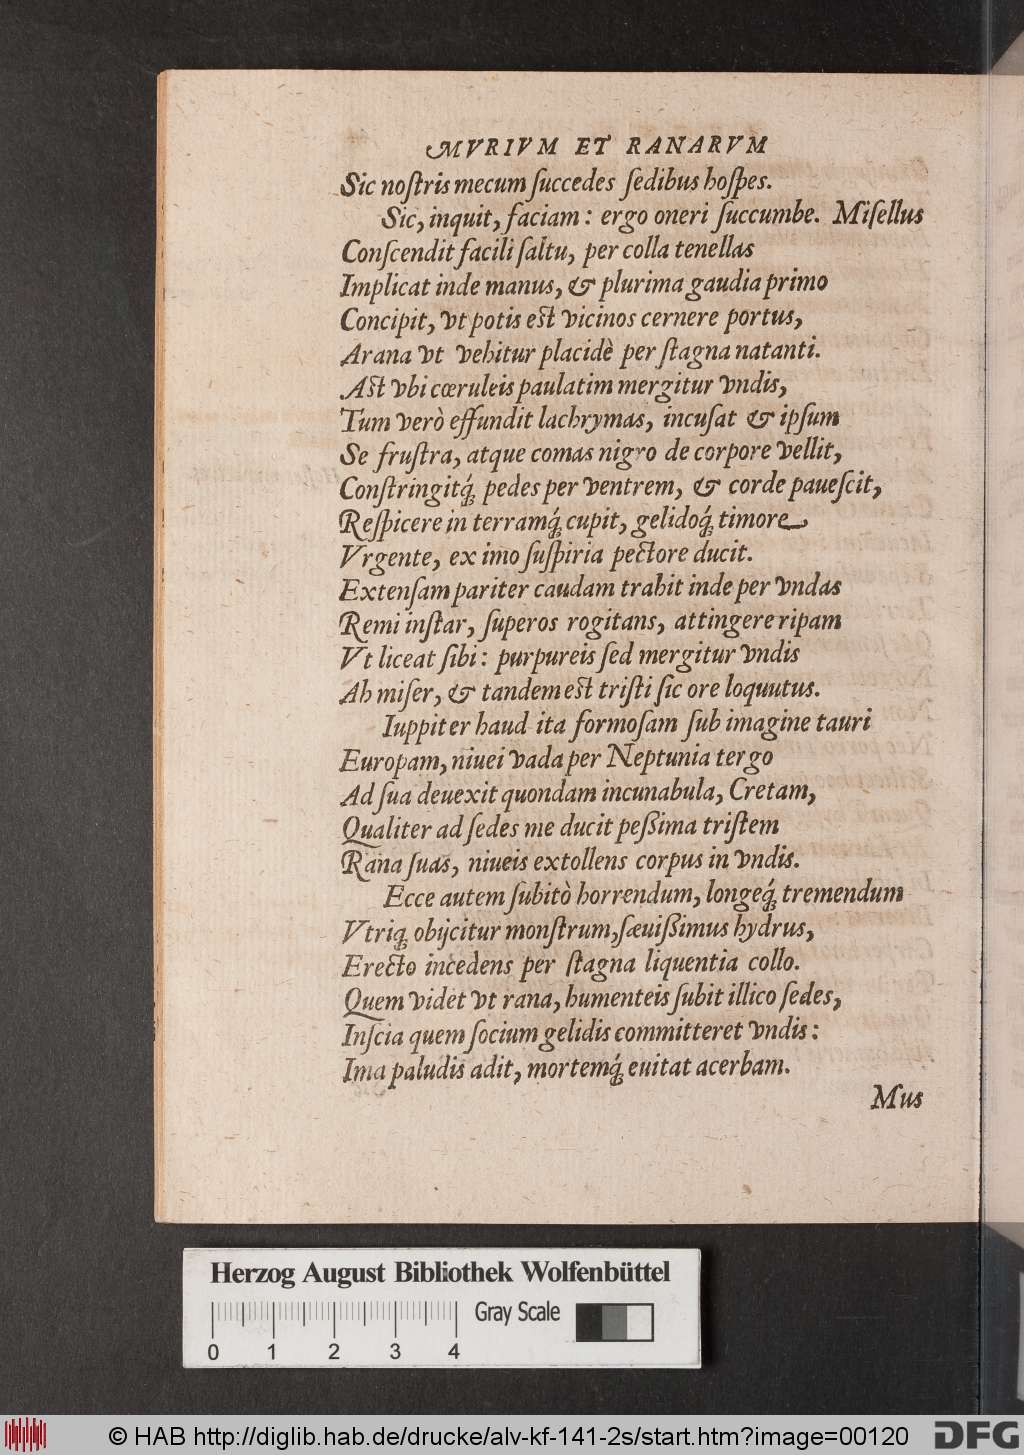 MVRIVM ET RANARVM
Sic noſtris mecum ſuccedes ſedibus hoſpes.
Sic, inquit, faciam: ergo oneri ſuccumbe. Miſellus
Conſcendit facili ſaltu, per colla tenellas
Implicat inde manus, & plurima gaudia primo
Concipit, vt potis est vicinos cernere portus,
A rana vt vehitur placidè per ſtagna natanti.
Ast vbi cœruleis paulatim mergitur vndis,
Tum verò effundit lachrymas, incuſat & ipſum
Se fruſtra, atque comas nigro de corpore vellit,
Conſtringitq́; pedes per ventrem, & corde paueſcit,
Reſpicere in terramq́; cupit, gelidoq́; timore
Vrgente, ex imo ſuſpiria pectore ducit.
Extenſam pariter caudam trahit inde per vndas
Remi inſtar, ſuperos rogitans, attingere ripam
Vt liceat ſibi: purpureis ſed mergitur vndis
Ah miſer, & tandem est triſti ſic ore loquutus.
Iuppiter haud ita formoſam ſub imagine tauri
Europam, niuei vada per Neptunia tergo
Ad ſua deuexit quondam incunabula, Cretam,
Qualiter ad ſedes me ducit peßima triſtem
Rana ſuas, niueis extollens corpus in vndis.
Ecce autem ſubitò horrendum, longeq́; tremendum
Vtriq; obijcitur monſtrum, ſæuißimus hydrus,
Erecto incedens per ſtagna liquentia collo.
Quem videt vt rana, humenteis ſubit illico ſedes,
Inſcia quem ſocium gelidis committeret vndis:
Ima paludis adit, mortemq́; euitat acerbam.
Mus
Herzog August Bibliothek Wolfenbüttel
Gray Scale
0 1 2 3 4
© HAB http://diglib.hab.de/drucke/alv-kf-141-2s/start.htm?image=00120
DFG